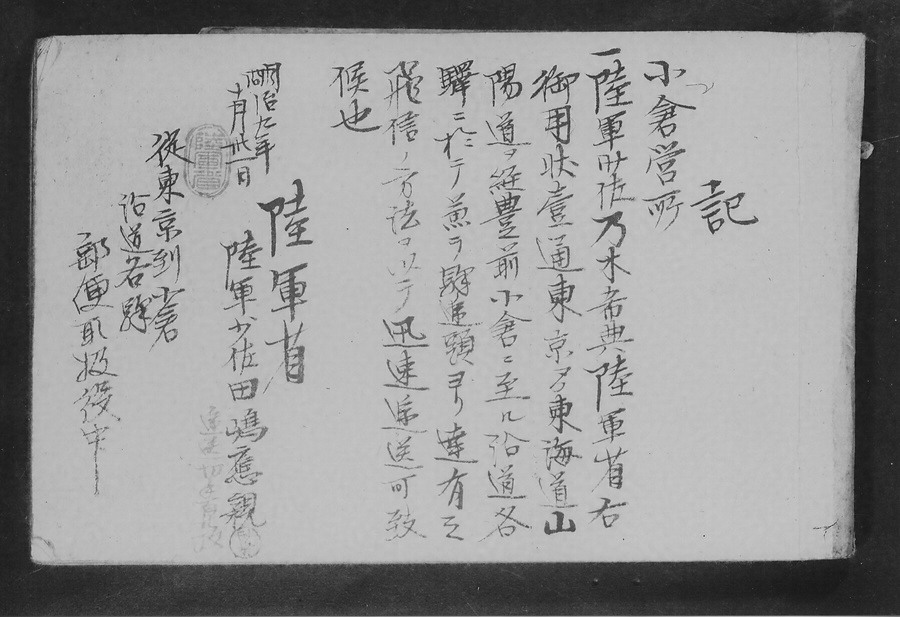 記
小倉営所
一陸軍少佐乃木希典陸軍省右
御用状壹通東京ヨリ東海道山
陽道ヲ経豊前小倉ニ至ル沿道各
驛ニ於テ兼ラ驛逓頭ヨリ達有之
飛信ノ方法ヲ以テ迅速逓送可致
候也
明治九年
十月卅一日
陸軍省
陸軍少佐田嶋應親
從東京到小倉
沿道各驛
郵便取扱役中
陸軍省